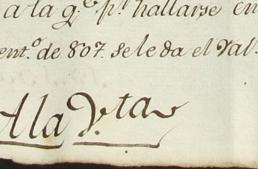 a la q.e p.r hallarse en
ent.o de 807. se le da el Val.
A la V.ta